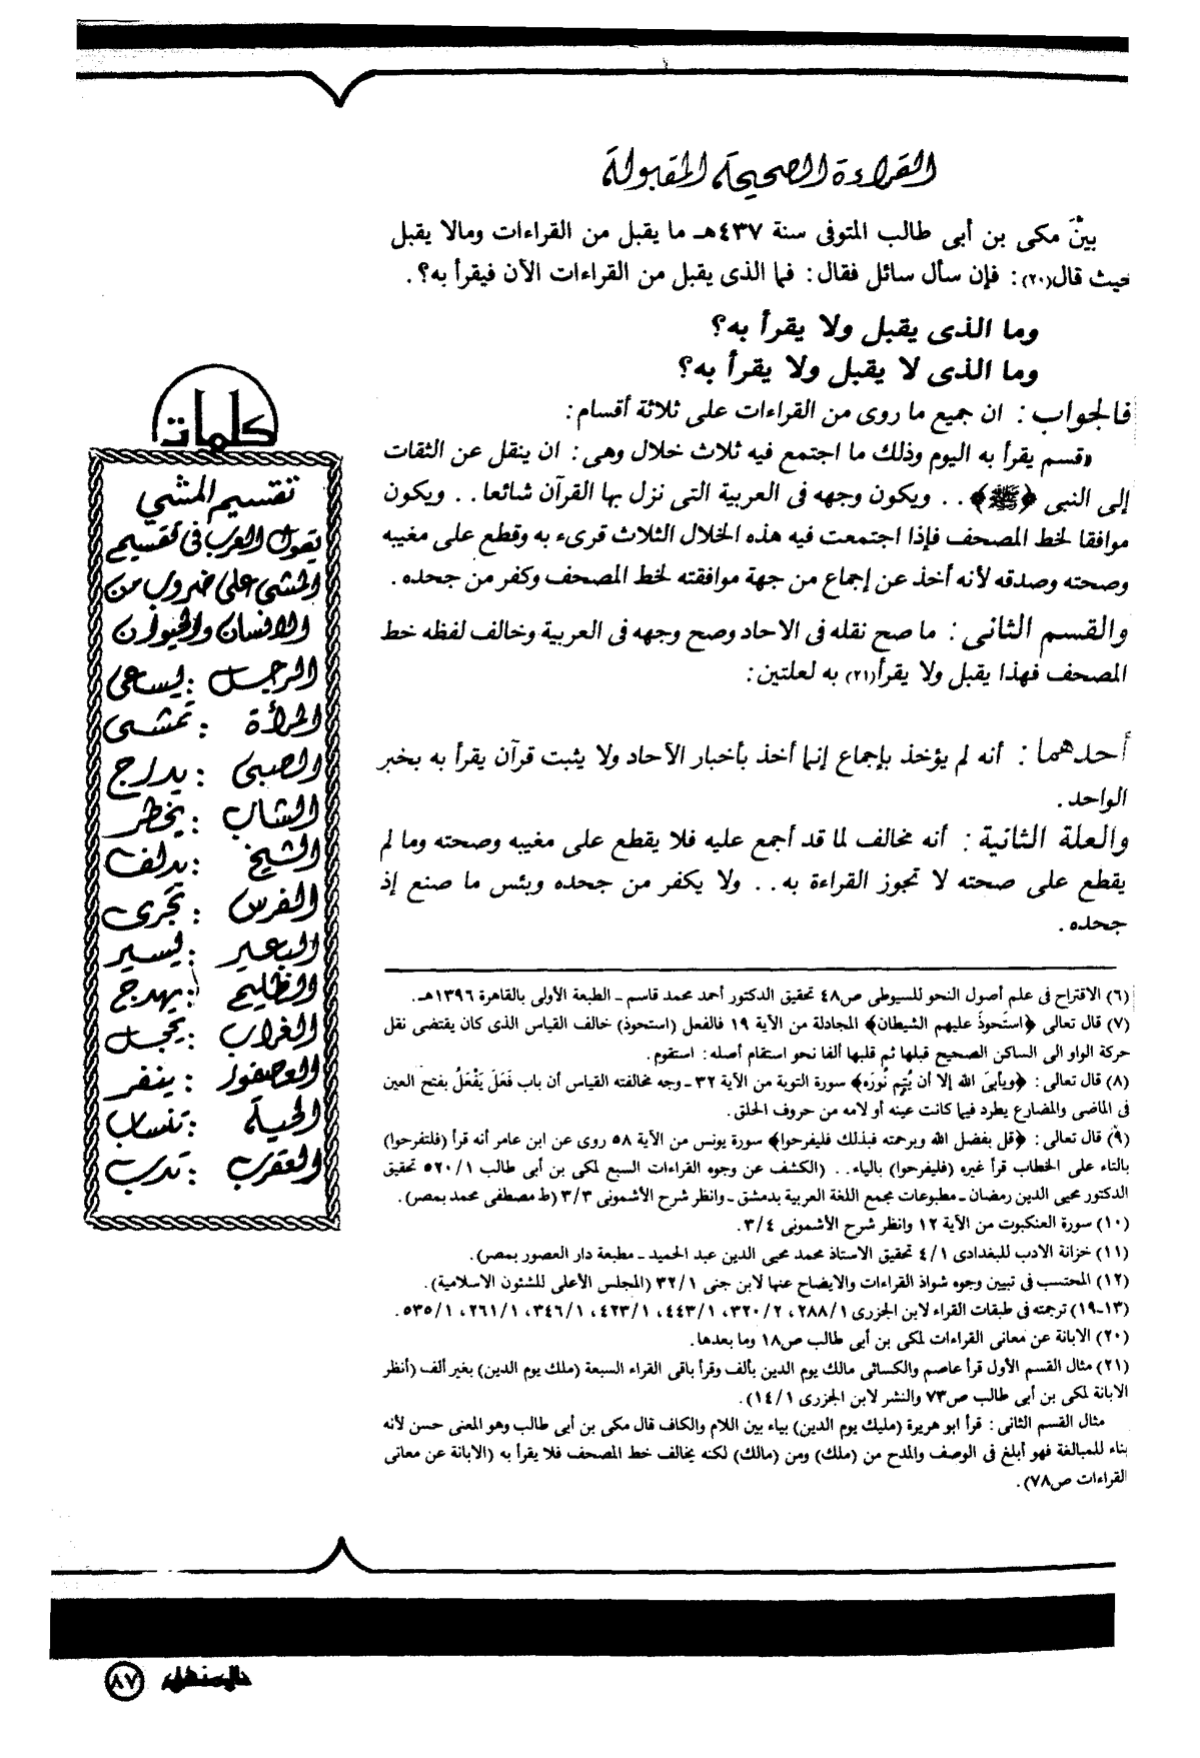 القراءة الصحيحة المقبولة
بيّن مكى بن أبى طالب المتوفى سنة ٤٣٧هـ ما يقبل من القراءات ومالا يقبل
حيث قال(٢٠): فإن سأل سائل فقال: فما الذى يقبل من القراءات الآن فيقرأ به؟.
وما الذى يقبل ولا يقرأ به؟
وما الذى لا يقبل ولا يقرأ به؟
فالجواب: ان جميع ما روى من القراءات على ثلاثة أقسام:
«قسم يقرأ به اليوم وذلك ما اجتمع فيه ثلاث خلال وهى: ان ينقل عن الثقات
إلى النبى ﴿ﷺ﴾.. ويكون وجهه فى العربية التى نزل بها القرآن شائعا.. ويكون
موافقا لخط المصحف فإذا اجتمعت فيه هذه الخلال الثلاث قرىء به وقطع على مغيبه
وصحته وصدقه لأنه أخذ عن إجماع من جهة موافقته لخط المصحف وكفر من جحده.
والقسم الثانى: ما صح نقله فى الاحاد وصح وجهه فى العربية وخالف لفظه خط
المصحف فهذا يقبل ولا يقرأ(٢١) به لعلتين:
أحدهما: أنه لم يؤخذ بإجماع إنما أخذ بأخبار الآحاد ولا يثبت قرآن يقرأ به بخبر
الواحد.
والعلة الثانية: أنه مخالف لما قد أجمع عليه فلا يقطع على مغيبه وصحته وما لم
يقطع على صحته لا تجوز القراءة به.. ولا يكفر من جحده وبئس ما صنع إذ
جحده.
(٦) الاقتراح فى علم أصول النحو للسيوطى ص٤٨ تحقيق الدكتور أحمد محمد قاسم ـ الطبعة الأولى بالقاهرة ١٣٩٦هـ.
(٧) قال تعالى ﴿استَحوذَ عليهم الشيطان﴾ المجادلة من الآية ١٩ فالفعل (استحوذ) خالف القياس الذى كان يقتضى نقل
حركة الواو الى الساكن الصحيح قبلها ثم قلبها ألفا نحو استقام أصله: استقوم.
(٨) قال تعالى: ﴿ويأبىَ الله إلا أن يُتِم نُورَه﴾ سورة التوبة من الآية ٣٢ ـ وجه مخالفته القياس أن باب فَعَلَ يَفْعَلُ بفتح العين
فى الماضى والمضارع يطرد فيما كانت عينه أو لامه من حروف الحلق.
(٩) قال تعالى: ﴿قل بفضل الله وبرحمته فبذلك فليفرحوا﴾ سورة يونس من الآية ٥٨ روى عن ابن عامر أنه قرأ (فلتفرحوا)
بالتاء على الخطاب قرأ غيره (فليفرحوا) بالياء.. (الكشف عن وجوه القراءات السبع لمكى بن أبى طالب ٥٢٠/١ تحقيق
الدكتور محيى الدين رمضان ـ مطبوعات مجمع اللغة العربية بدمشق ـ وانظر شرح الأشمونى ٣/٣ (ط مصطفى محمد بمصر).
(١٠) سورة العنكبوت من الآية ١٢ وانظر شرح الأشمونى ٣/٤.
(١١) خزانة الادب للبغدادى ٤/١ تحقيق الاستاذ محمد محيى الدين عبد الحميد ـ مطبعة دار العصور بمصر).
(١٢) المحتسب فى تبيين وجوه شواذ القراءات والايضاح عنها لابن جنى ٣٢/١ (المجلس الأعلى للشئون الاسلامية).
(١٣-١٩) ترجمته فى طبقات القراء لابن الجزرى ٢٨٨/١، ٣٢٠/٢، ٤٤٣/١، ٤٢٣/١، ٣٤٦/١، ٢٦١/١، ٥٣٥/١.
(٢٠) الابانة عن معانى القراءات لمكى بن أبى طالب ص١٨ وما بعدها.
(٢١) مثال القسم الأول قرأ عاصم والكسائى مالك يوم الدين بألف وقرأ باقى القراء السبعة (ملك يوم الدين) بغير ألف (أنظر
الابانة لمكى بن أبى طالب ص٧٣ والنشر لابن الجزرى ١٤/١).
مثال القسم الثانى: قرأ ابو هريرة (مليك يوم الدين) بياء بين اللام والكاف قال مكى بن أبى طالب وهو المعنى حسن لأنه
بناء للمبالغة فهو أبلغ فى الوصف والمدح من (ملك) ومن (مالك) لكنه يخالف خط المصحف فلا يقرأ به (الابانة عن معانى
القراءات ص٧٨).
كلمات
تقسيم المشي
تقول العرب فى تقسيم
المشى على ضروب من
الانسان والحيوان
الرجل : يسعى
المرأة : تمشى
الصبى : يدرج
الشاب : يخطر
الشيخ : يدلف
الفرس : تجرى
البعير : يسير
الظليم : يهدج
الغراب : يحجل
العصفور : ينقر
الحية : تنساب
العقرب : تدب
المنهل
٨٧